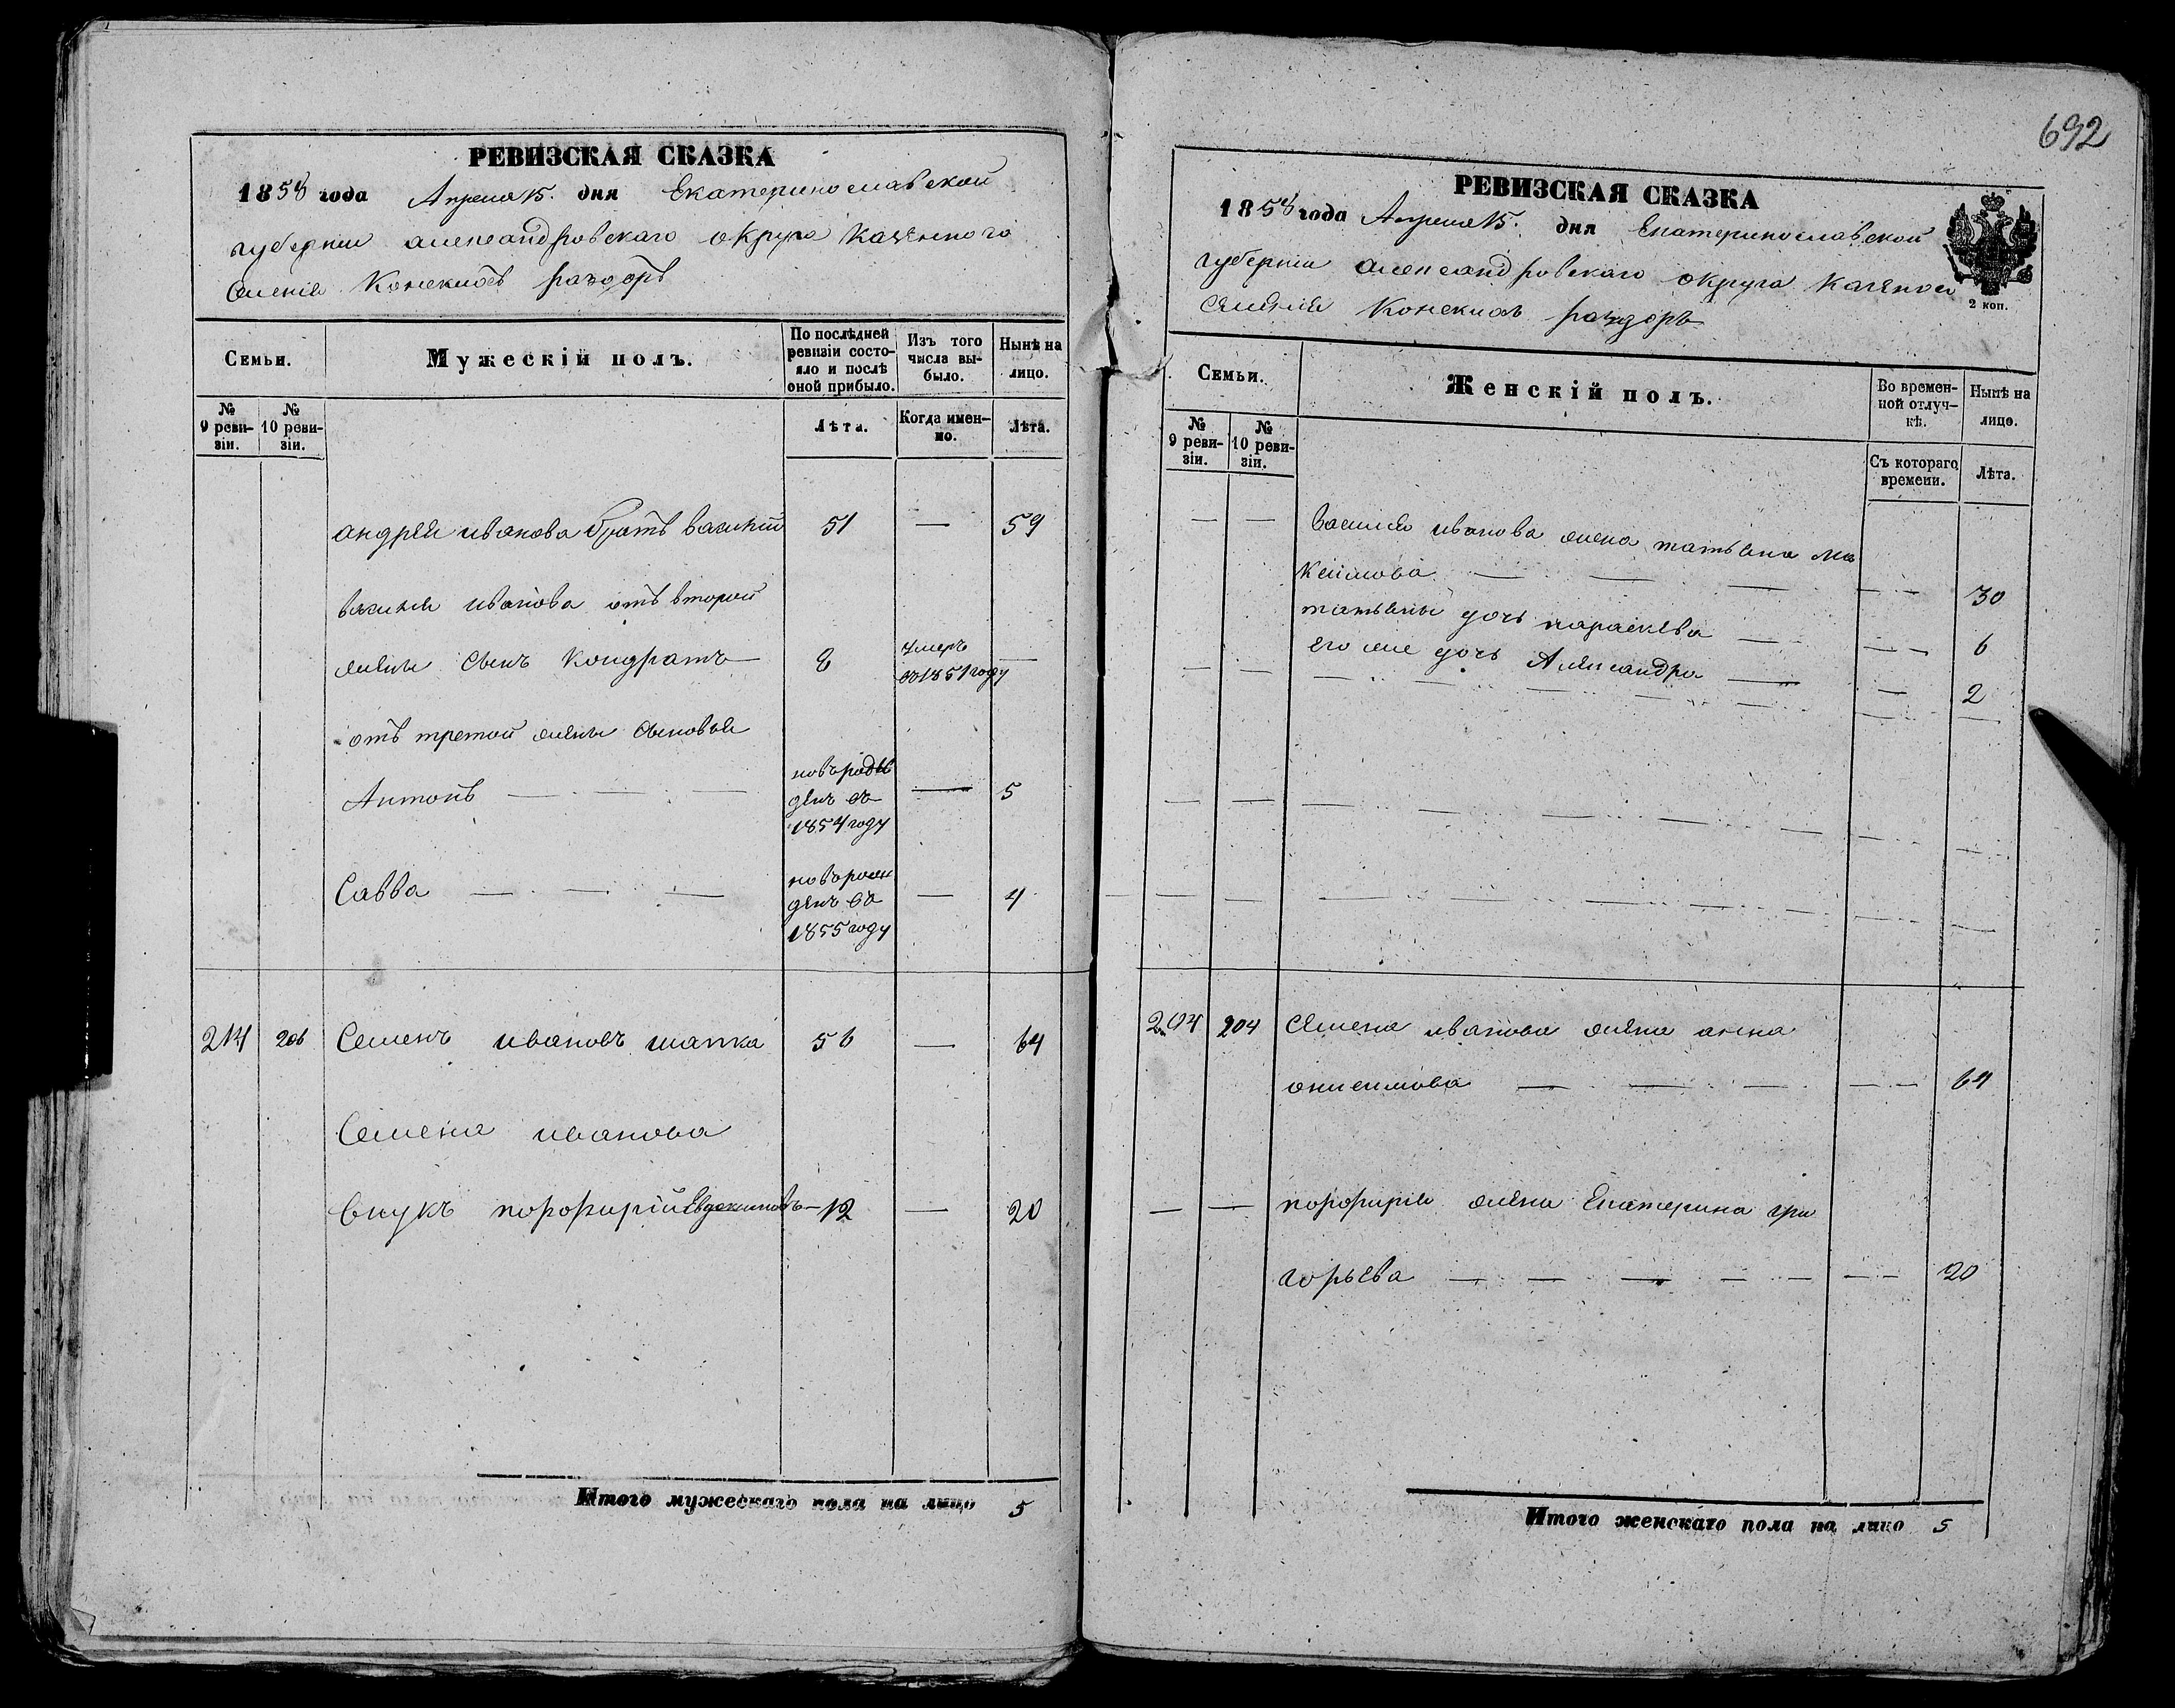 692
РЕВИЗСКАЯ СКАЗКА
1858 года Апреля 15. дня Екатеринославской
губернии александровскаго округа Казенного
Селения Конскихъ раздоръ
Семьи.
Мужескій полъ.
По послѣдней ревизіи состояло и послѣ оной прибыло.
Изъ того числа выбыло.
Нынѣ на лицо.
№ 9 ревизіи.
№ 10 ревизіи.
Лѣта.
Когда именно.
Лѣта.
андрея иванова братъ василий 51 — 59
василия иванова отъ второй
жены сынъ Кондратъ — 8 умеръ въ 1851 году —
отъ третой жены сыновья
Антонъ — — — новорож
денъ въ — 5
1854 году
Савва — — — новорож
денъ въ — 4
1855 году
214 206 Семенъ ивановъ шапка 56 — 64
Семена иванова
внукъ порофирій Евдокимовъ — 12 — 20
Итого мужескаго пола на лицо 5
РЕВИЗСКАЯ СКАЗКА
1858 года Апреля 15. дня Екатеринославской
губернии александровскаго округа Казеннаго
селения Конскихъ раздоръ
2 коп.
Семьи.
Женскій полъ.
Во временной отлучкѣ.
Нынѣ на лицо.
№ 9 ревизіи.
№ 10 ревизіи.
Съ котораго времени.
Лѣта.
— — Василия иванова жена татьяна ма
ксимова — — — — — 30
татьяны дочь параскева — — — 6
— — его же дочь Александра — — 2
204 204 Семена иванова жена анна
онисимова — — — — — 64
— — порофирия жена Екатерина гри
горьева — — — — — — — 20
Итого женскаго пола на лицо 5